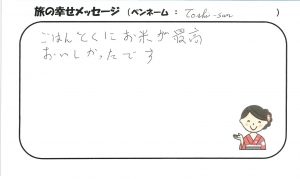 旅の幸せメッセージ (ペンネーム : Toshi-sun )
ごはんとくにお米が最高
おいしかったです